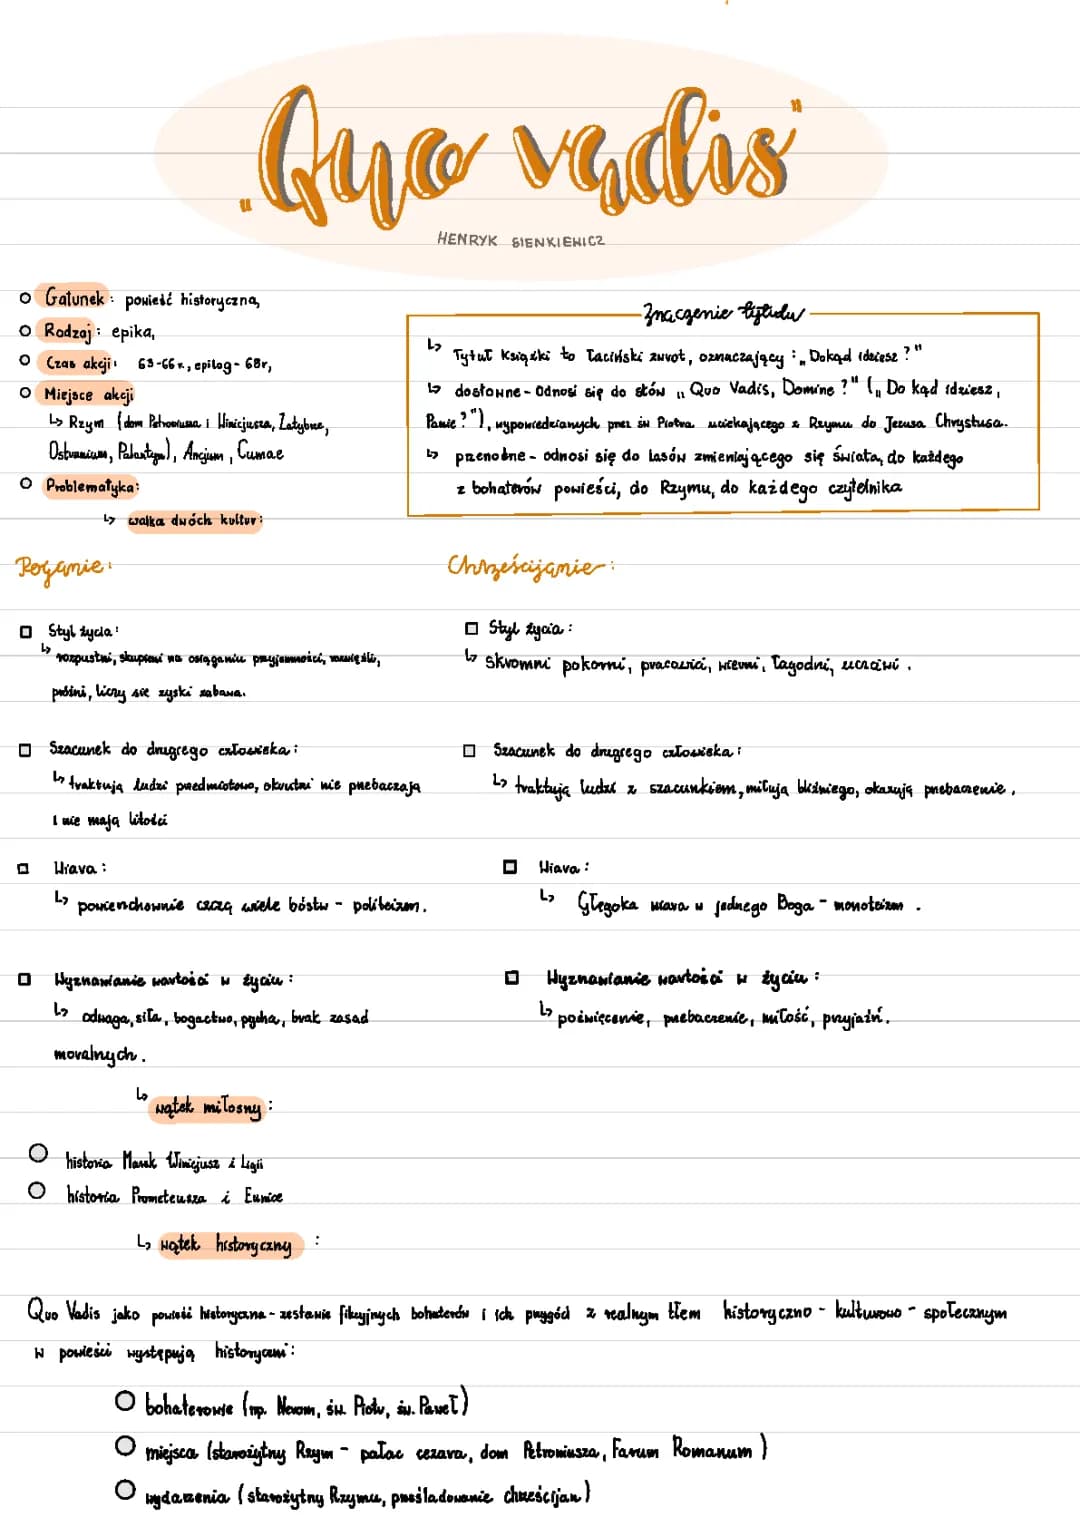 „Quo vadis"
HENRYK SIENKIEWICZ
Gatunek: powieść historyczna,
Rodzaj: epika,
Czas akcji: 63-66r, epilog - 68r,
Miejsce akcji
↳ Rzym (dom Petroniusza i Winicjusza, Zatybrze,
Ostranium, Palantyn), Ancjum, Cumae
Problematyka:
↳ walka dwóch kultur:
Znaczenie tytułu
↳ Tytuł książki to łaciński zwrot, oznaczający: „Dokąd idziesz?"
↳ dosłowne - odnosi się do słów „Quo Vadis, Domine?" („Do kąd idziesz,
Panie?"), wypowiedzianych przez św Piotra uciekającego z Rzymu do Jezusa Chrystusa.
↳ przenośne - odnosi się do lasów zmieniającego się świata, do każdego
z bohaterów powieści, do Rzymu, do każdego czytelnika
Poganie:
Styl życia:
↳ rozpustni, skupieni na osiąganiu przyjemności,
próżni, liczy się zyski zabawa.
Szacunek do drugiego człowieka:
↳ traktują ludzi przedmiotowo, okrutni nie przebaczają
i nie mają litości
Wiara:
↳ powierzchownie czczą wiele bóstw - politeizm.
Wyznawanie wartości w życiu:
↳ odwaga, siła, bogactwo, pycha, brak zasad
moralnych.
Chrześcijanie:
Styl życia:
↳ Skromni pokorni, pracowici, wierni, łagodni, uczciwi.
Szacunek do drugiego człowieka:
↳ traktują ludzi z szacunkiem, miłują bliźniego, okazują przebaczenie.
Wiara:
↳ Głęgoka wiara w jednego Boga - monoteizm.
Wyznawianie wartości w życiu:
↳ poświęcenie, przebaczenie, miłość, przyjaźń.
↳ wątek miłosny:
historia Marek Winicjusz i Ligii
historia Prometeusza i Eunice
↳ wątek historyczny:
Quo Vadis jako powieść historyczna - zestawia fikcyjnych bohaterów i ich przygód z realnym tłem historyczno - kulturowo - społecznym
W powieści występują historyczni:
bohaterowie (np. Neron, św. Piotr, św. Paweł)
miejsca (starożytny Rzym - pałac cezara, dom Petroniusza, Farum Romanum)
wydarzenia (starożytny Rzymu, prześladowanie chrześcijan)